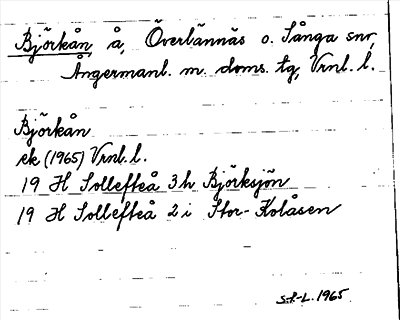 Björkån, å, Överlännäs o. Sånga snr,
Ångermanl. m. doms. tg, Vrnl. l.
Björkån
ek (1965) Vrnl. l.
19 H Sollefteå 3h Björksjön
19 H Sollefteå 2i Stor-Kolåsen
S.f.-L. 1965